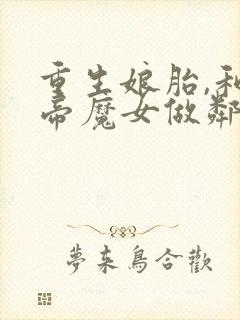 重生娘胎,和
帝魔女做鄰
夢来鳥合歡